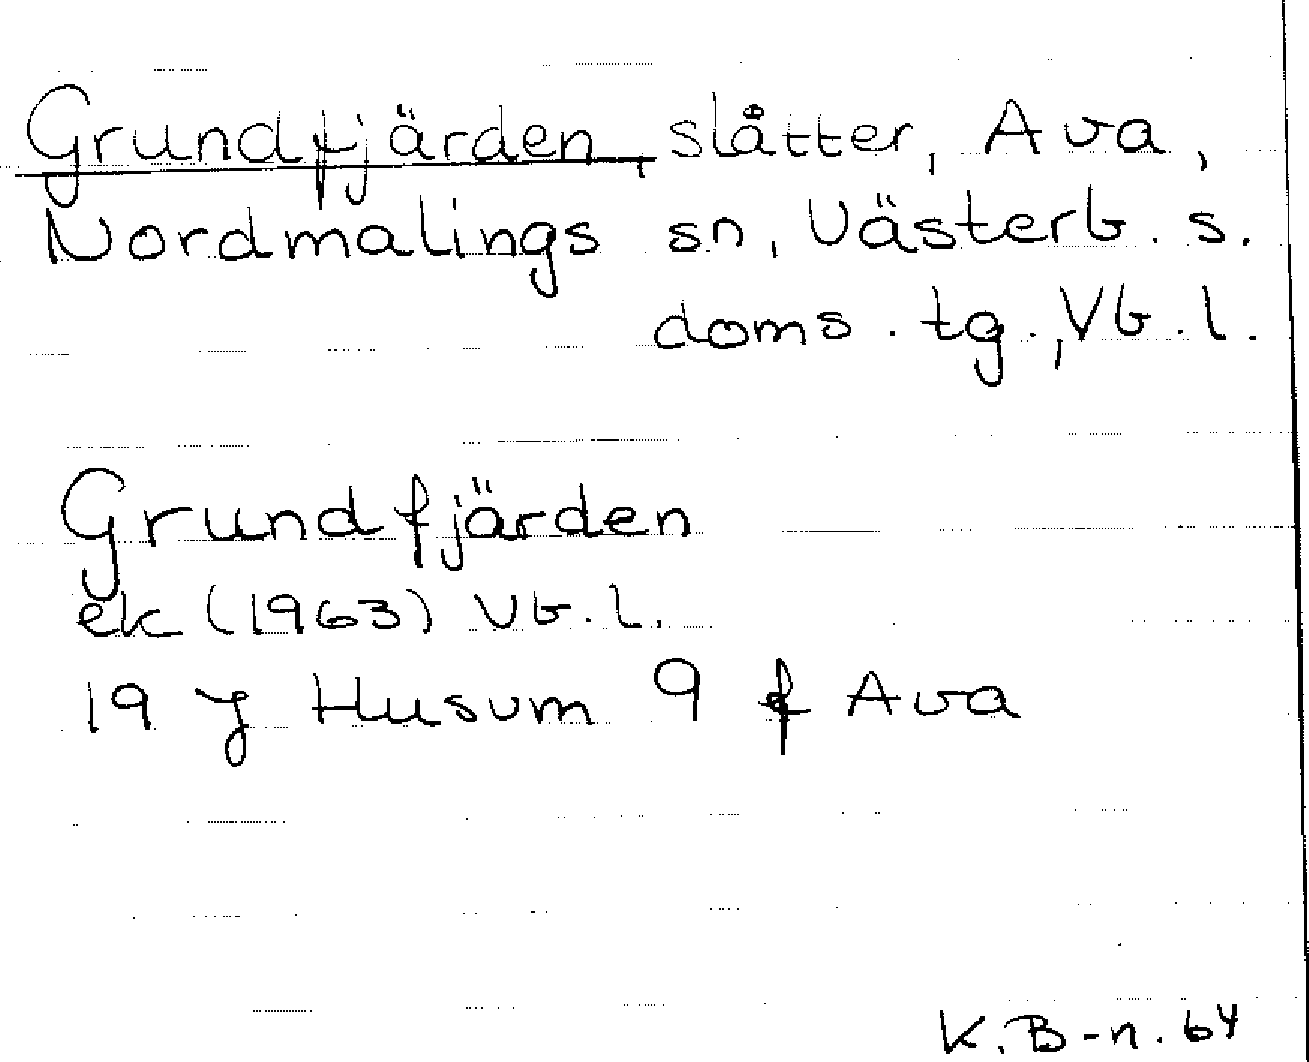 Grundfjärden, slåtter, Ava,
Nordmalings sn, Västerb. s.
doms. tg., Vb. l.
Grundfjärden
ek (1963) Vb. l.
19 J Husum 9 f Ava
K. B-n. 64